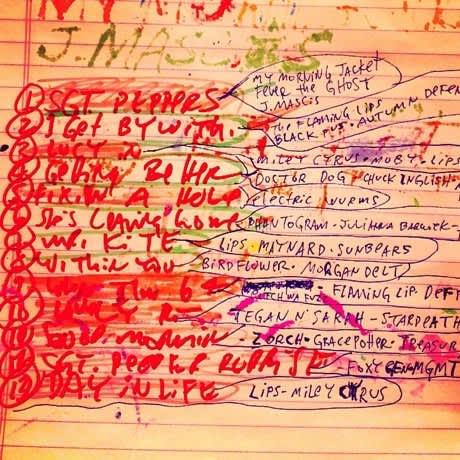 MY
J. MASCIS
① SGT PEPPERS MY MORNING JACKET
FEVER THE GHOST
J. MASCIS
② I GET BY WITH. THE FLAMING LIPS
BLACK PUS. AUTUMN DEFEN
③ LUCY IN MILEY CYRUS. MOBY. LIPS
④ GETTING BETTER DOCTOR DOG. CHUCK INGLISH.
⑤ FIXIN A HOLE ELECTRIC WURMS
⑥ SHE'S LEAVING HOME PHANTOGRAM. JULIANNA BARWICK-
MR. KITE LIPS. MAYNARD. SUNBEARS
WITHIN YOU BIRDFLOWER. MORGAN DELT
WHEN 6 FLAMING LIP. DEF
LOVELY R TEGAN N' SARAH - STARDEATH
GOOD MORNIN ZORCH. GRACE POTTER. TREASUR
SGT. PEPPER REPRISE FOXYGEN. MGMT
⑬ DAY IN LIFE LIPS - MILEY CYRUS